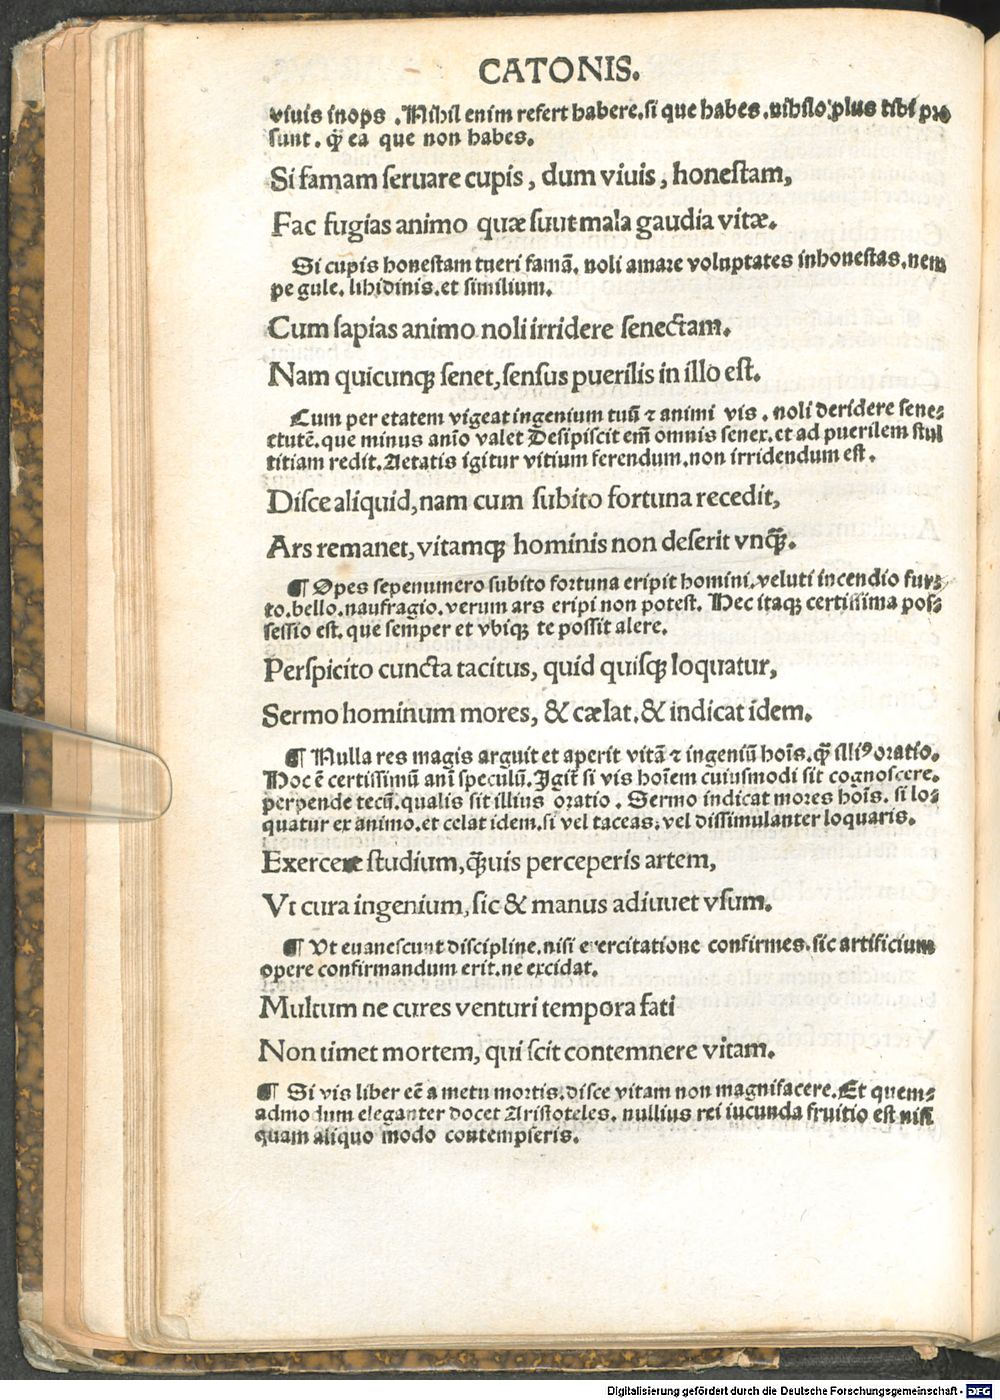 CATONIS.
viuis inops . Nihil enim refert habere. si que habes. nihilo plus tibi pro
sunt . q̃ ea que non habes.
Si famam seruare cupis , dum viuis , honestam,
Fac fugias animo quæ suut mala gaudia vitæ.
Si cupis honestam tueri famã. noli amare voluptates inhonestas. nem
pe gule. libidinis. et similium.
Cum sapias animo noli irridere senectam.
Nam quicunqꝫ senet, sensus puerilis in illo est.
Cum per etatem vigeat ingenium tuũ ⁊ animi vis . noli deridere sene⸗
ctutẽ. que minus anĩo valet Desipiscit em̃ omnis senex. et ad puerilem stul
titiam redit. Aetatis igitur vitium ferendum. non irridendum est .
Disce aliquid, nam cum subito fortuna recedit,
Ars remanet, vitamqꝫ hominis non deserit vnq̃.
¶ Opes sepenumero subito fortuna eripit homini. veluti incendio fur⸗
to. bello. naufragio. verum ars eripi non potest. Hec itaqꝫ certissima pos⸗
sessio est. que semper et vbiqꝫ te possit alere.
Perspicito cuncta tacitus, quid quisqꝫ loquatur,
Sermo hominum mores, & cælat, & indicat idem.
¶ Nulla res magis arguit et aperit vitã ⁊ ingeniũ hoĩs. q̃ illiꝰ oratio.
Hoc ẽ certissimũ anĩ speculũ. Igit̃ si vis hoĩem cuiusmodi sit cognoscere.
perpende tecũ. qualis sit illius oratio . Sermo indicat mores hoĩs. si lo⸗
quatur ex animo. et celat idem. si vel taceas. vel dissimulanter loquaris.
Exercete studium, q̃uis perceperis artem,
Vt cura ingenium, sic & manus adiuuet vsum.
¶ Ut euanescunt discipline. nisi exercitatione confirmes. sic artificium
opere confirmandum erit. ne excidat.
Multum ne cures venturi tempora fati
Non timet mortem, qui scit contemnere vitam.
¶ Si vis liber eẽ a metu mortis. disce vitam non magnifacere. Et quem⸗
admodum eleganter docet Aristoteles. nullius rei iucunda fruitio est nisi
quam aliquo modo contempseris.
Digitalisierung gefördert durch die Deutsche Forschungsgemeinschaft - DFG